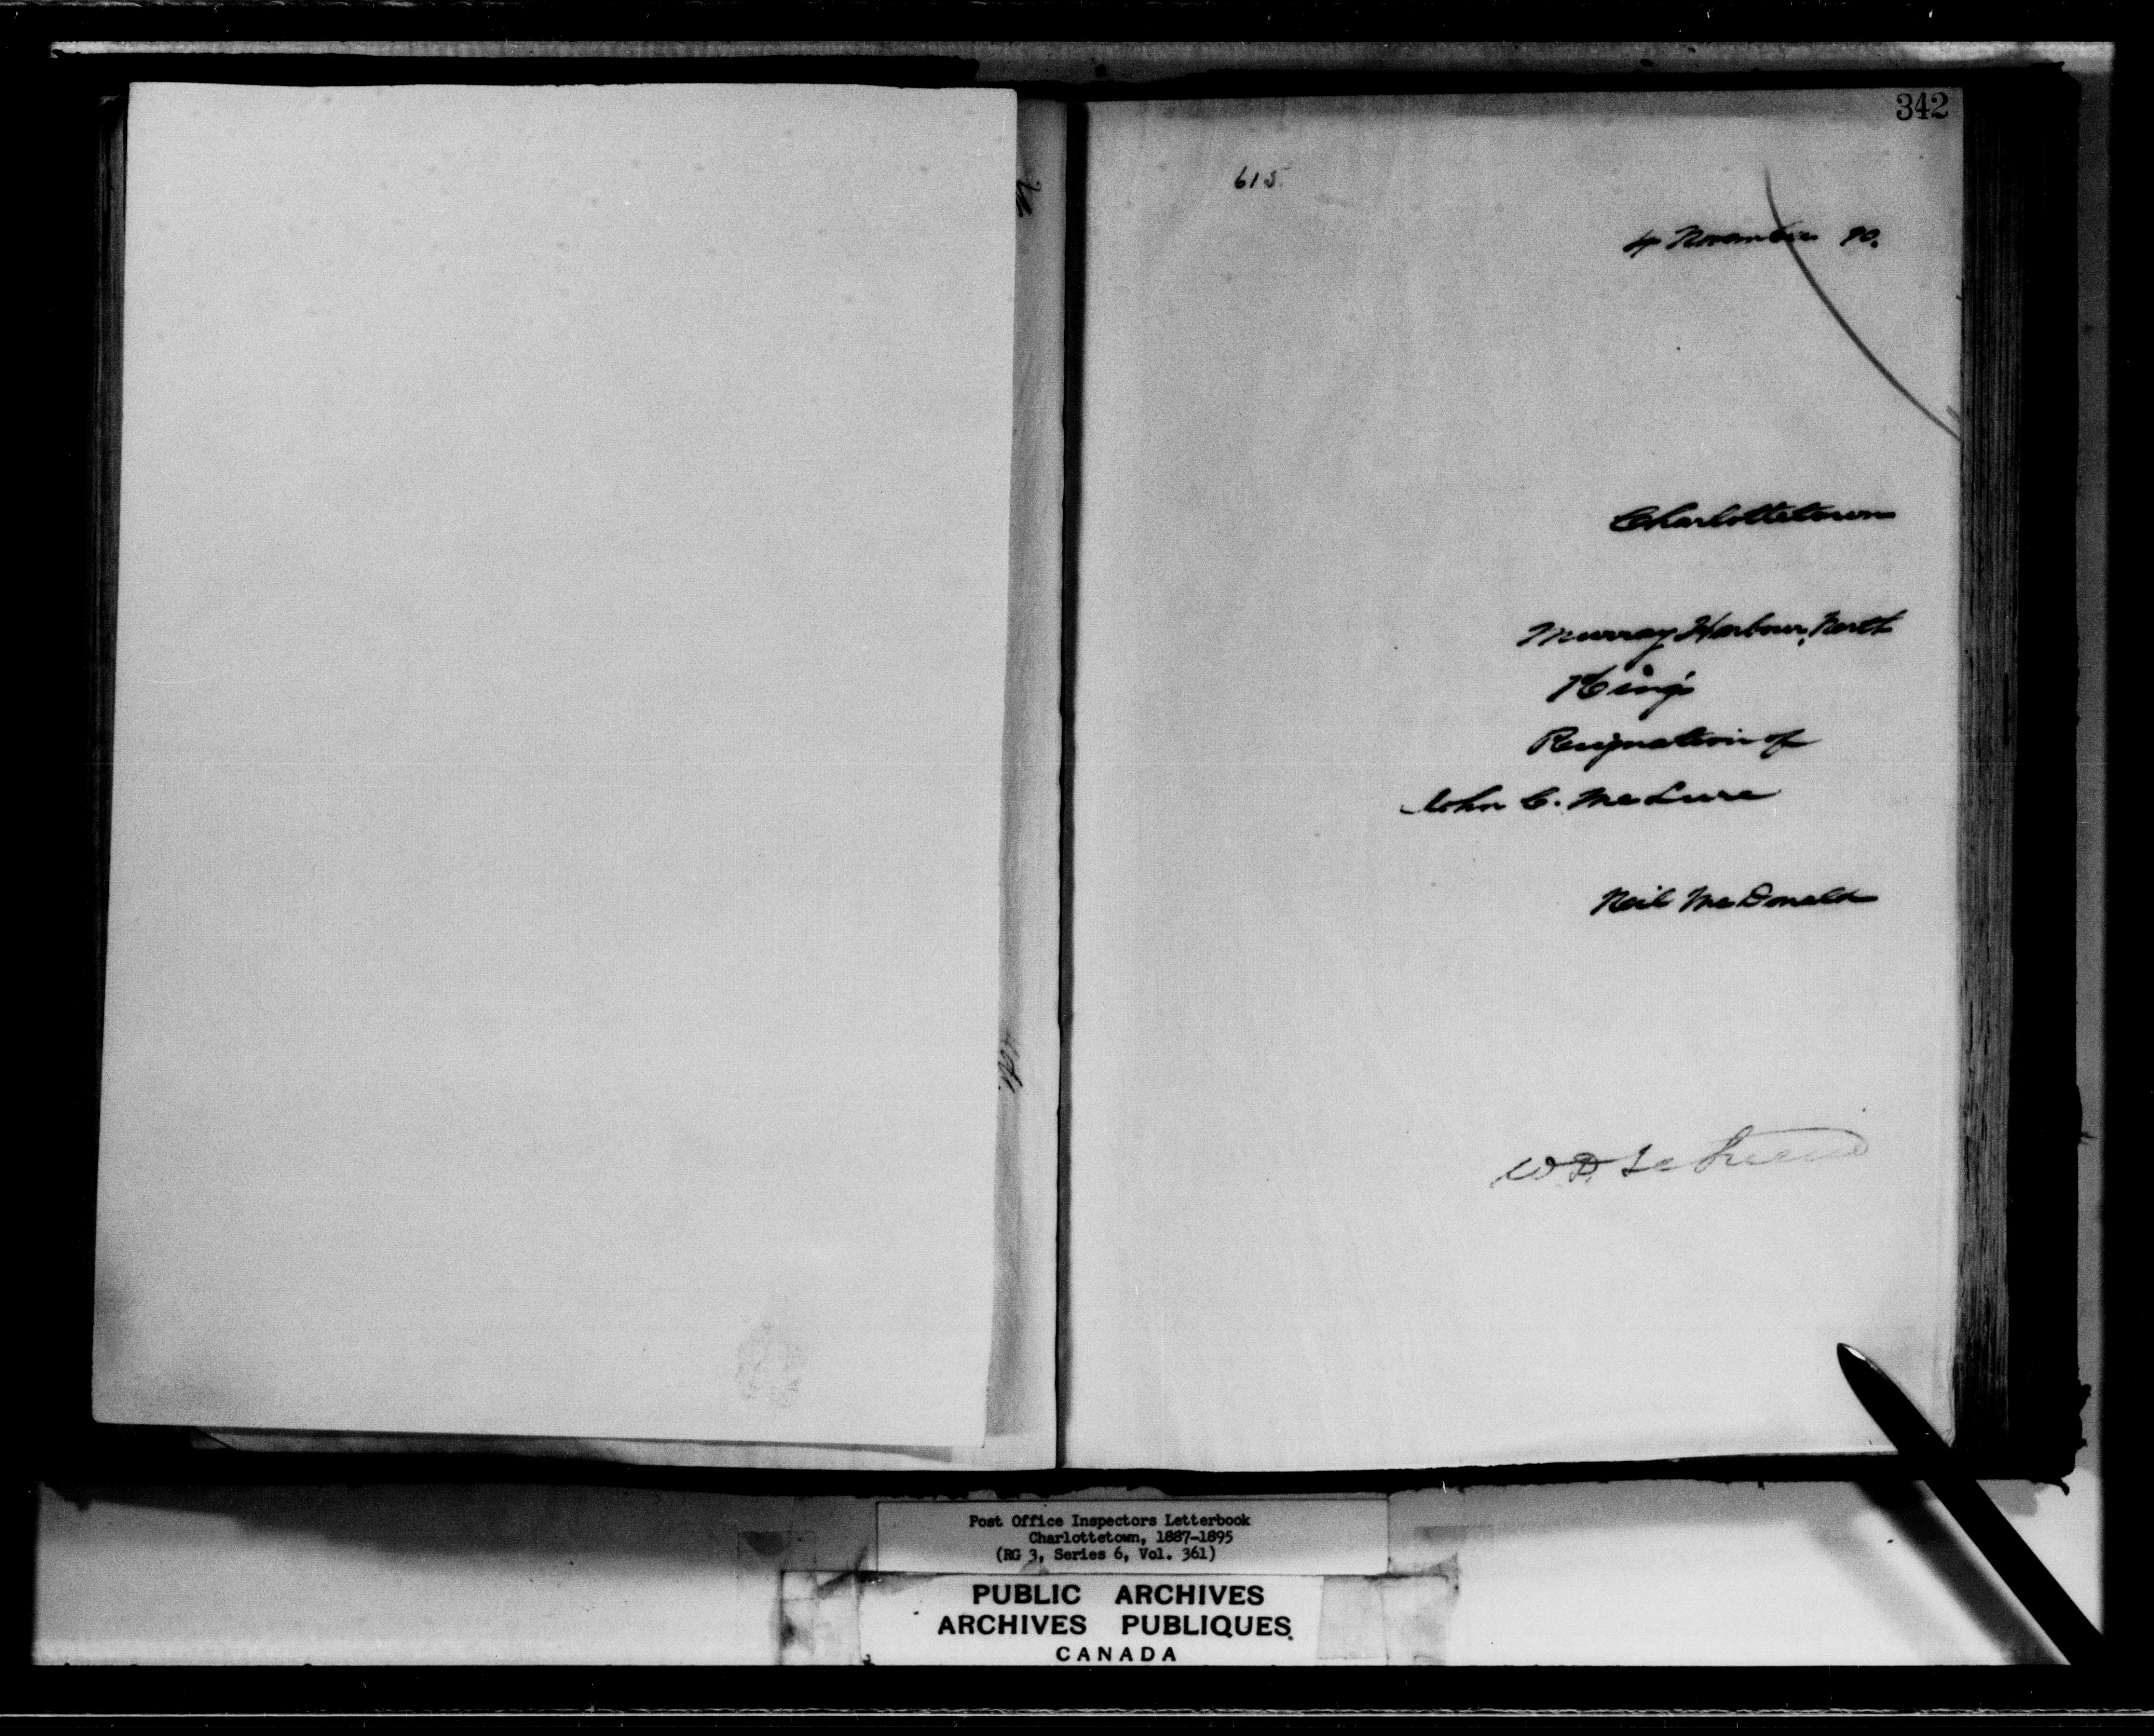 342
615
4 November 90.
Charlottetown
Murray Harbour, North
King's
Resignation of
John C. McLure
Neil McDonald
Post Office Inspectors Letterbook
Charlottetown, 1887-1895
(RG 3, Series 6, Vol. 361)
PUBLIC ARCHIVES
ARCHIVES PUBLIQUES
CANADA